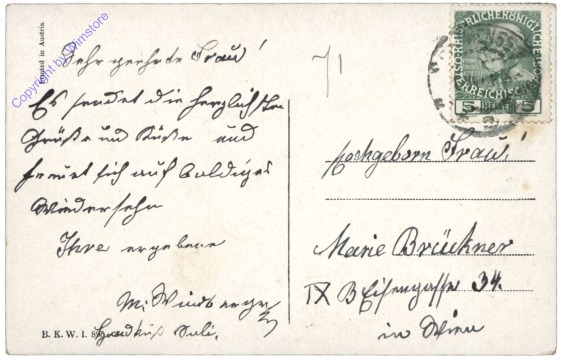 Printed in Austria.
Copyright by Wimstore
Sehr geehrte Frau!
Es sendet die herzlichsten
Grüße und Küße und
freuet sich auf baldiges
Wiedersehn
Ihre ergebene
M. Windberger
Handkuß
B. K. W. I.
71
KAISERLICHE KÖNIGLICHE
ÖSTERREICHISCHE
5 HELLER 5
Hochgeborn Frau!
Marie Brückner
IX B Eisengasse 34.
in Wien